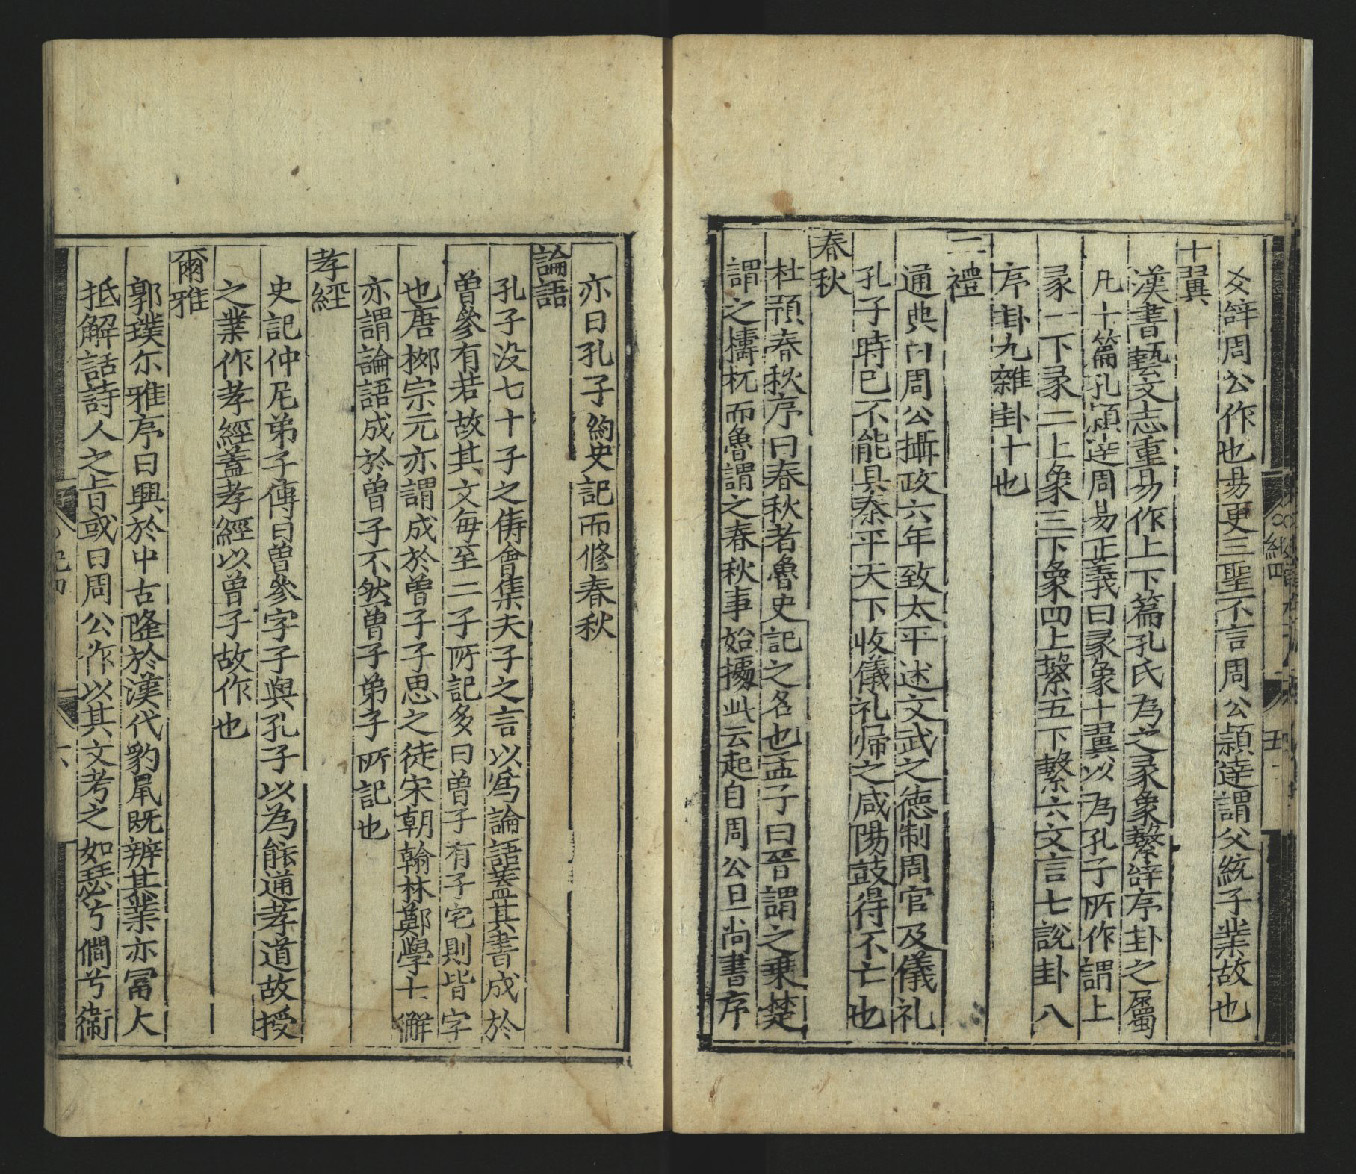 爻辝周公作也易更三聖不言周公頴逹謂父統子業故也
十翼
漢書藝文志重易作上下篇孔氏為之彖象繫辝序卦之屬
凡十篇孔頴逹周易正義曰彖象十翼以為孔子所作謂上
彖一下彖二上象三下象四上繫五下繫六文言七說卦八
序卦九雜卦十也
二禮
通典曰周公攝政六年致太平述文武之德制周官及儀礼
孔子時已不能具秦平天下收儀礼归之咸陽鼓得不亡也
春秋
杜預春秋序曰春秋者魯史記之名也孟子曰晉謂之乗楚
謂之檮杌而魯謂之春秋事始據此云起自周公旦尚書序
亦曰孔子約史記而修春秋
論語
孔子没七十子之儔會集夫子之言以為論語蓋其書成於
曽參有若故其文毎至二子所記多曰曽子有子它則皆字
也唐栁宗元亦謂成於曽子子思之徒宋朝翰林鄭學士觧
亦謂論語成於曽子不然曽子弟子所記也
孝經
史記仲尼弟子傳曰曽參字子輿孔子以為能通孝道故授
之業作孝經蓋孝經以曽子故作也
爾雅
郭璞尔雅序曰興於中古隆於漢代豹鼠既辨其業亦冨大
抵解詁詩人之旨或曰周公作以其文考之如瑟兮僩兮衛